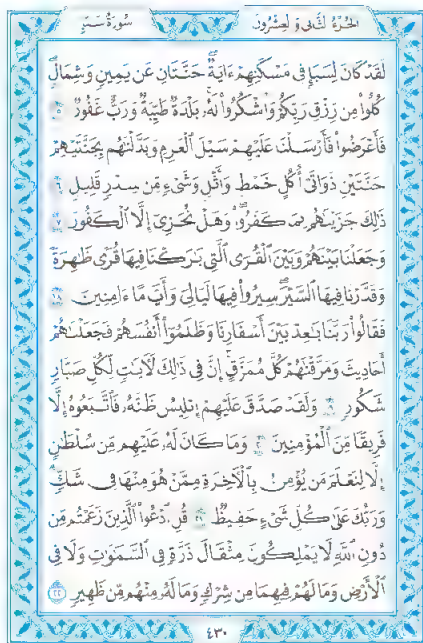 الجزء الثاني والعشرون سورة سبإ
لَقَدۡ كَانَ لِسَبَإٖ فِي مَسۡكَنِهِمۡ ءَايَةٞۖ جَنَّتَانِ عَن يَمِينٖ وَشِمَالٖۖ
كُلُواْ مِن رِّزۡقِ رَبِّكُمۡ وَٱشۡكُرُواْ لَهُۥۚ بَلۡدَةٞ طَيِّبَةٞ وَرَبٌّ غَفُورٞ ١٥
فَأَعۡرَضُواْ فَأَرۡسَلۡنَا عَلَيۡهِمۡ سَيۡلَ ٱلۡعَرِمِ وَبَدَّلۡنَٰهُم بِجَنَّتَيۡهِمۡ
جَنَّتَيۡنِ ذَوَاتَيۡ أُكُلٍ خَمۡطٖ وَأَثۡلٖ وَشَيۡءٖ مِّن سِدۡرٖ قَلِيلٖ ١٦
ذَٰلِكَ جَزَيۡنَٰهُم بِمَا كَفَرُواْۖ وَهَلۡ نُجَٰزِيٓ إِلَّا ٱلۡكَفُورَ ١٧
وَجَعَلۡنَا بَيۡنَهُمۡ وَبَيۡنَ ٱلۡقُرَى ٱلَّتِي بَٰرَكۡنَا فِيهَا قُرٗى ظَٰهِرَةٗ
وَقَدَّرۡنَا فِيهَا ٱلسَّيۡرَۖ سِيرُواْ فِيهَا لَيَالِيَ وَأَيَّامًا ءَامِنِينَ ١٨
فَقَالُواْ رَبَّنَا بَٰعِدۡ بَيۡنَ أَسۡفَارِنَا وَظَلَمُوٓاْ أَنفُسَهُمۡ فَجَعَلۡنَٰهُمۡ
أَحَادِيثَ وَمَزَّقۡنَٰهُمۡ كُلَّ مُمَزَّقٍۚ إِنَّ فِي ذَٰلِكَ لَأٓيَٰتٖ لِّكُلِّ صَبَّارٖ
شَكُورٖ ١٩ وَلَقَدۡ صَدَّقَ عَلَيۡهِمۡ إِبۡلِيسُ ظَنَّهُۥ فَٱتَّبَعُوهُ إِلَّا
فَرِيقٗا مِّنَ ٱلۡمُؤۡمِنِينَ ٢٠ وَمَا كَانَ لَهُۥ عَلَيۡهِم مِّن سُلۡطَٰنٍ
إِلَّا لِنَعۡلَمَ مَن يُؤۡمِنُ بِٱلۡأٓخِرَةِ مِمَّنۡ هُوَ مِنۡهَا فِي شَكّٖۗ
وَرَبُّكَ عَلَىٰ كُلِّ شَيۡءٍ حَفِيظٞ ٢١ قُلِ ٱدۡعُواْ ٱلَّذِينَ زَعَمۡتُم مِّن
دُونِ ٱللَّهِ لَا يَمۡلِكُونَ مِثۡقَالَ ذَرَّةٖ فِي ٱلسَّمَٰوَٰتِ وَلَا فِي
ٱلۡأَرۡضِ وَمَا لَهُمۡ فِيهِمَا مِن شِرۡكٖ وَمَا لَهُۥ مِنۡهُم مِّن ظَهِيرٖ ٢٢
٤٣٠